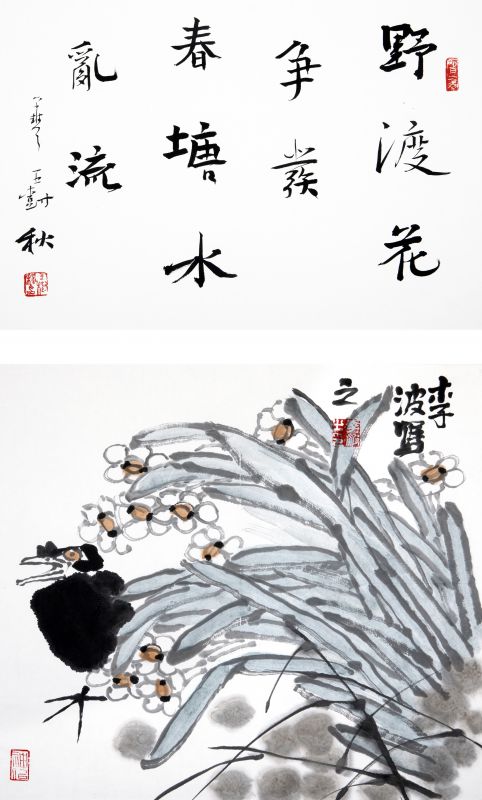 野渡花
争發
春塘水
亂流
秋
李
波寫
之